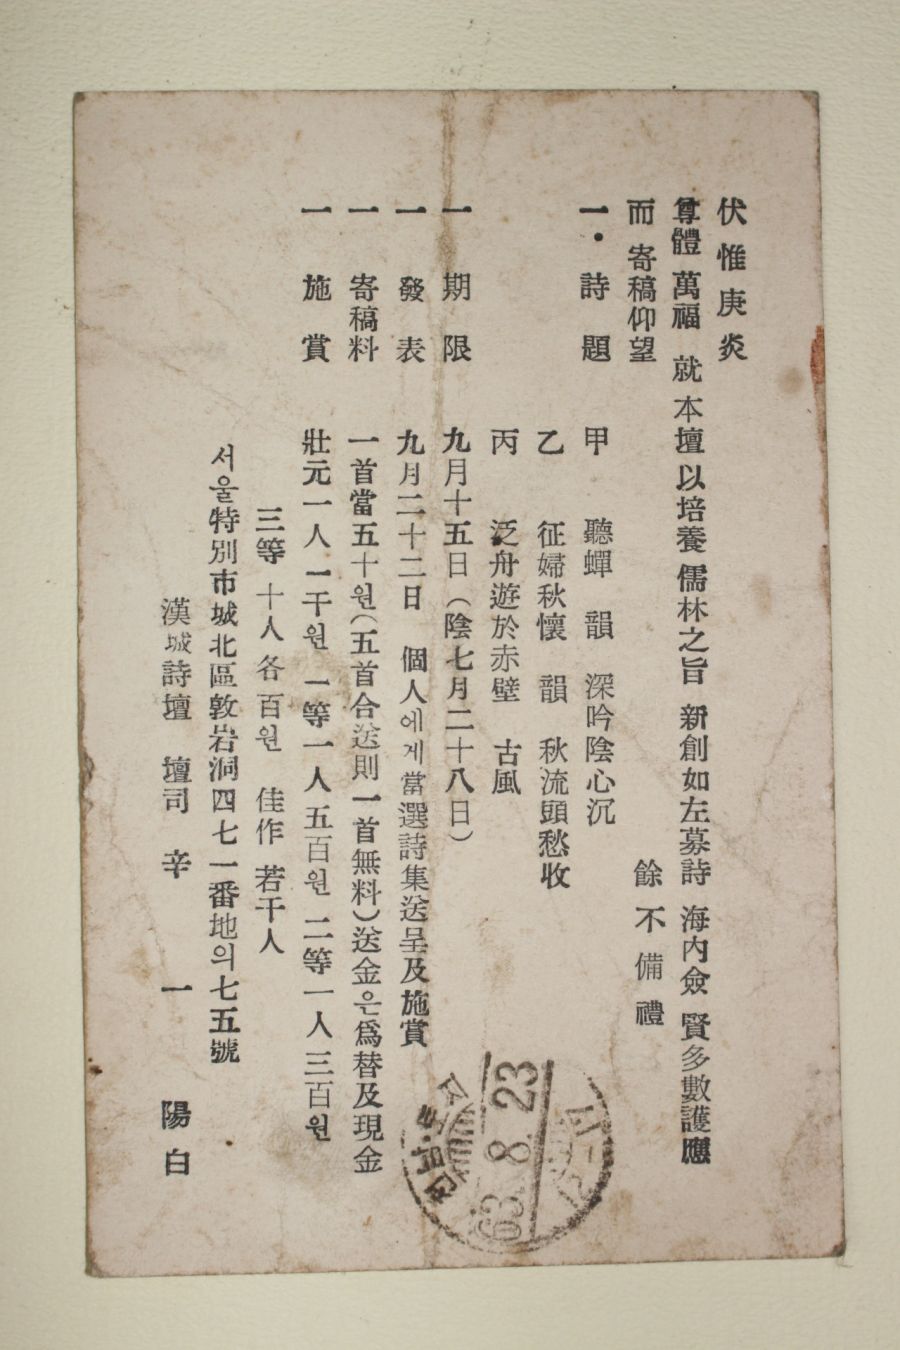 伏惟庚炎
尊體 萬福 就本壇以培養儒林之旨 新創如左募詩 海内僉 賢多數護應
而 寄稿仰望 餘不備禮
一. 詩題 甲 聽蟬 韻 深吟陰心沉
乙 征婦秋懷 韻 秋流頭愁收
丙 泛舟遊於赤壁 古風
一 期限 九月十五日(陰七月二十八日)
一 發表 九月二十二日 個人에게當選詩集送呈及施賞
一 寄稿料 一首當五十원(五首合送則一首無料)送金은爲替及現金
一 施賞 壯元一人一千원 一等一人五百원 二等一人三百원
三等 十人各百원 佳作 若干人
서울特別市城北區敦岩洞四七一番地의七五號
漢城詩壇 壇司 辛 一 陽 白
63.8.23